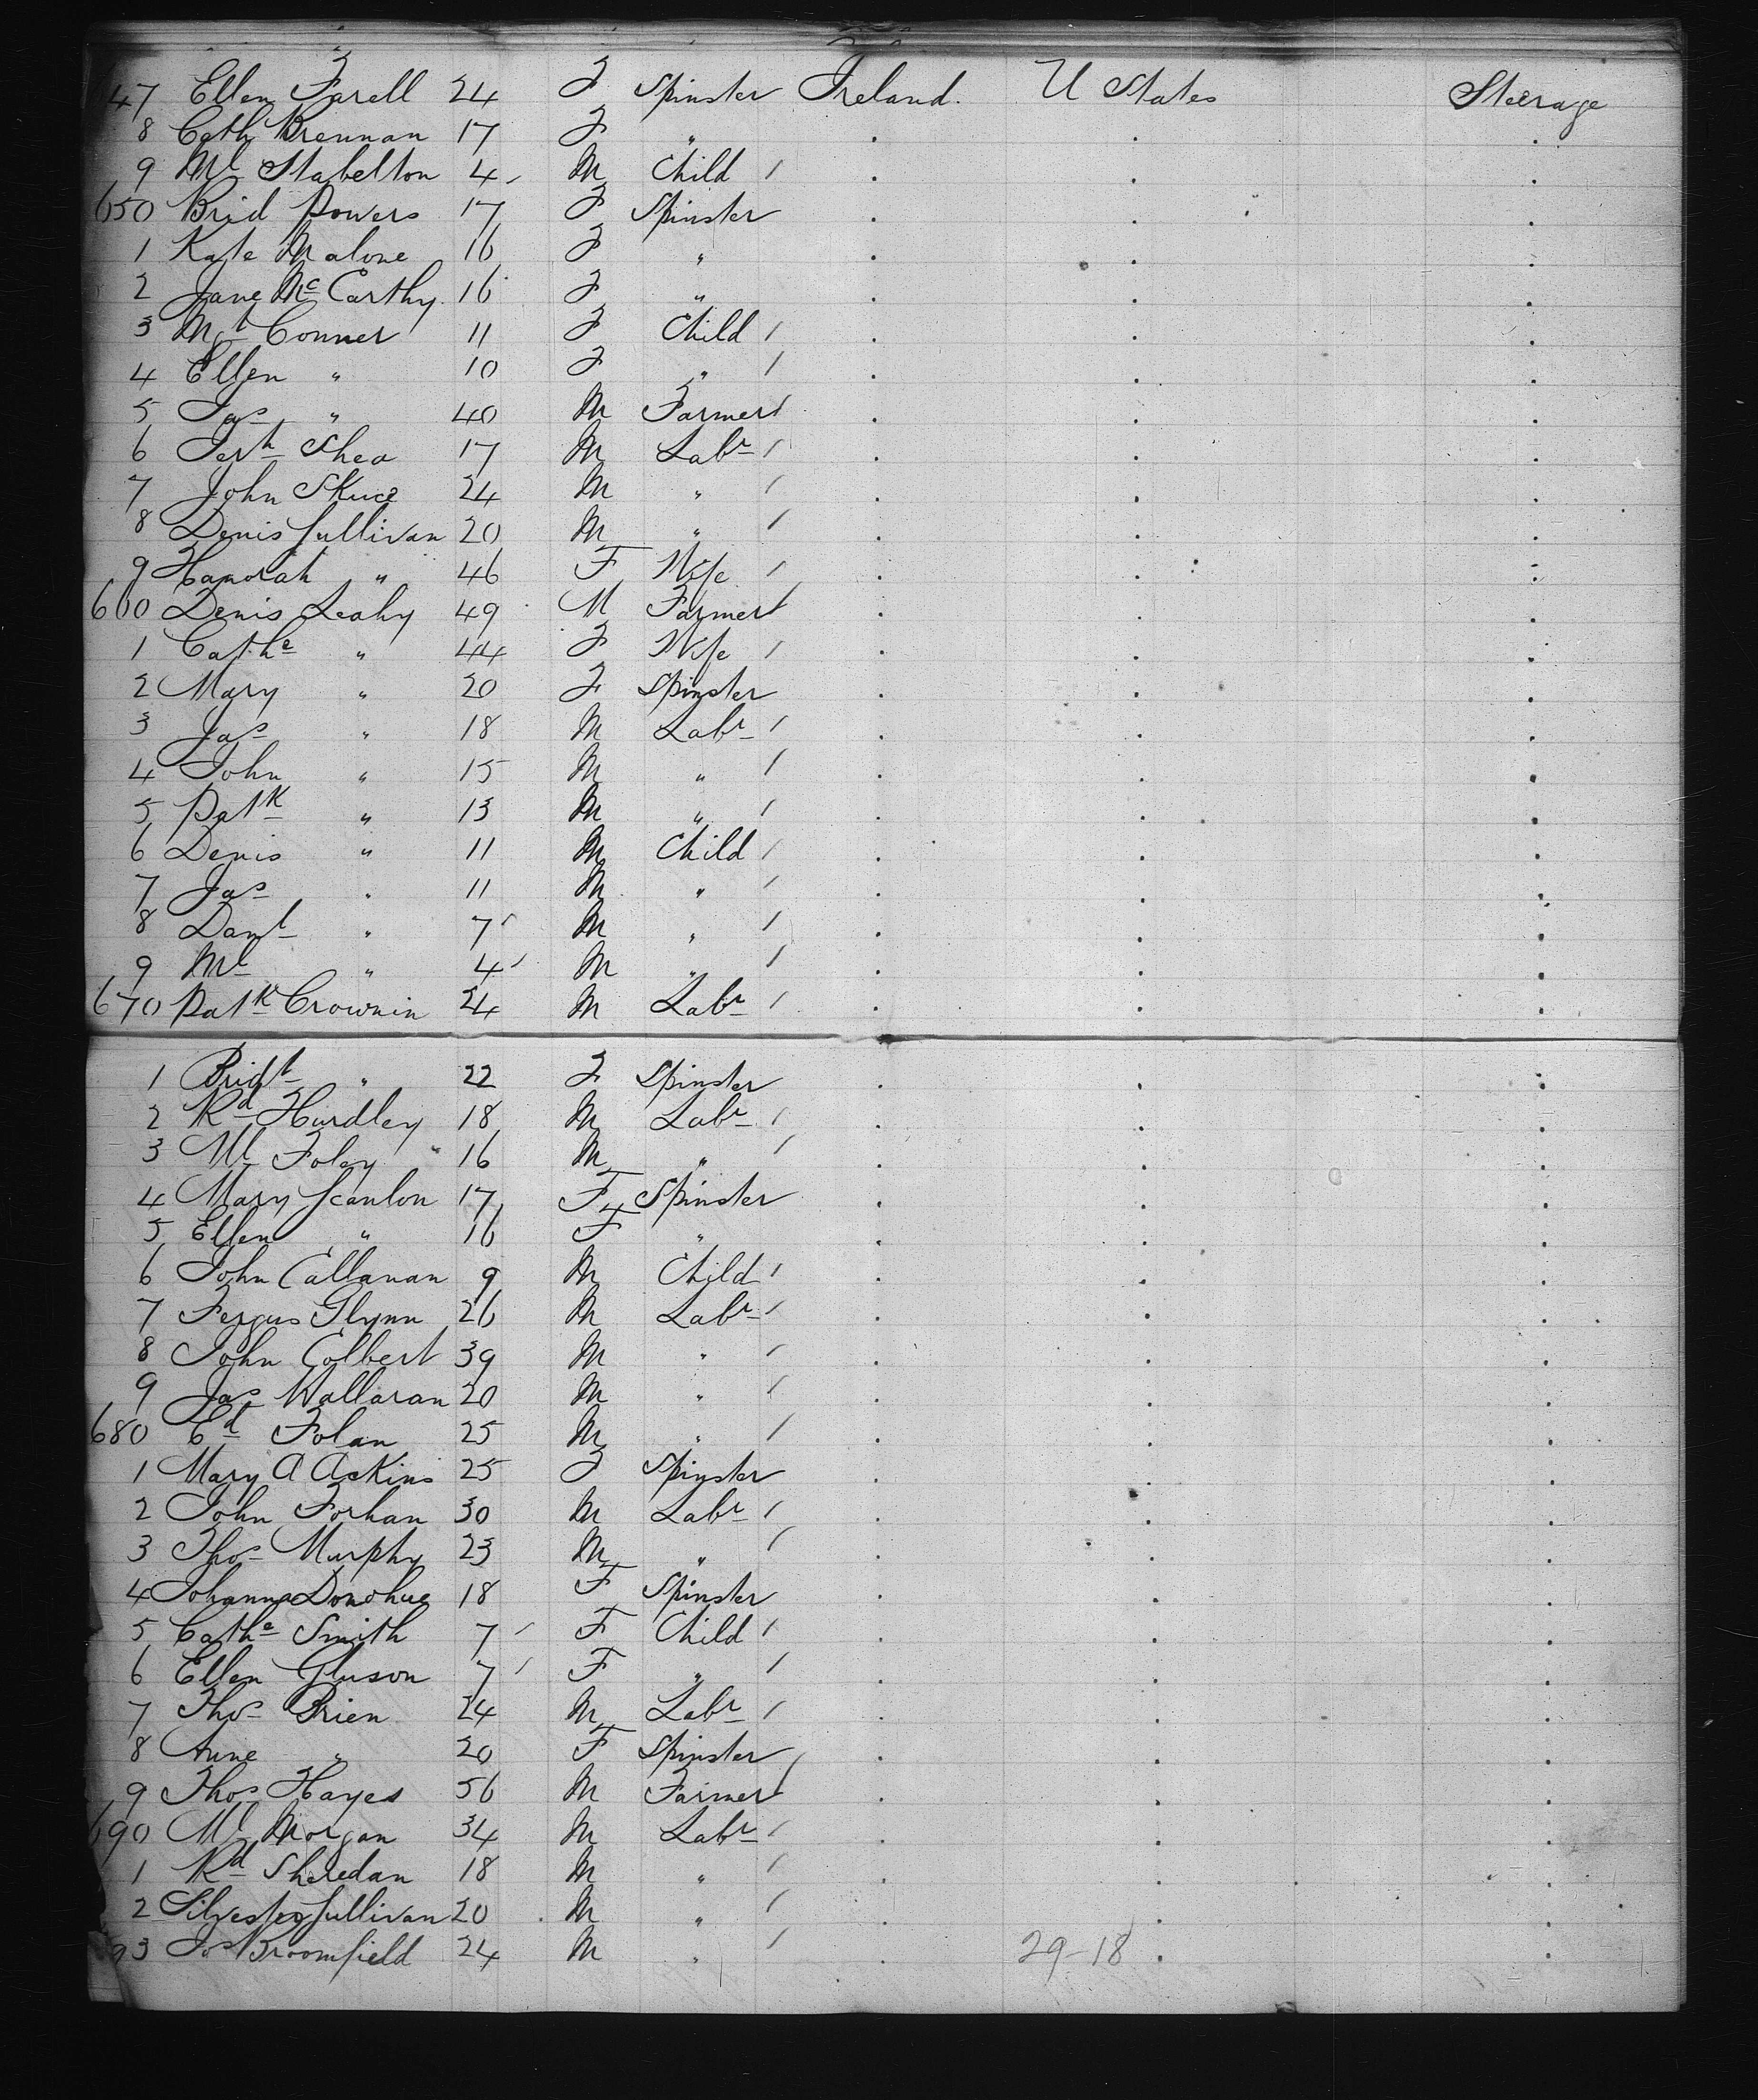 47 Ellen Farell 24 F Spinster Ireland. U States Steerage
8 Cath Brennan 17 F " . . .
9 Ml Stabelton 4 M Child / . . .
650 Brid Powers 17 F Spinster . . .
1 Kate Malone 16 F " . . .
2 Jane Mc Carthy 16 F " . . .
3 Mgt Conner 11 F Child / . . .
4 Ellen " 10 F " / . . .
5 Jas " 40 M Farmer / . . .
6 Jerh Shea 17 M Labr / . . .
7 John Skuce 24 M " / . . .
8 Denis Sullivan 20 M " / . . .
9 Hanorah " 46 F Wife / . . .
660 Denis Leahy 49 M Farmer / . . .
1 Cathe " 44 F Wife / . . .
2 Mary " 20 F Spinster . . .
3 Jas " 18 M Labr / . . .
4 John " 15 M " / . . .
5 Patk " 13 M " / . . .
6 Denis " 11 M Child / . . .
7 Jas " 11 M " / . . .
8 Danl " 7 M " / . . .
9 Ml " 4 M " / . . .
670 Patk Crownin 24 M Labr / . . .
1 Bridt " 22 F Spinster . . .
2 Rd Hurdley 18 M Labr / . . .
3 Ml Foley 16 M " / . . .
4 Mary Scanlon 17 F Spinster . . .
5 Ellen " 16 F " . . .
6 John Callanan 9 M Child / . . .
7 Fergus Glynn 26 M Labr / . . .
8 John Colbert 39 M " / . . .
9 Jas Hallaran 20 M " / . . .
680 Ed Folan 25 M " / . . .
1 Mary A Ackins 25 F Spinster . . .
2 John Forhan 30 M Labr / . . .
3 Thos Murphy 23 M " / . . .
4 Johanna Donohue 18 F Spinster . . .
5 Cathe Smith 7 F Child / . . .
6 Ellen Gluson 7 F " / . . .
7 Thos Brien 24 M Labr / . . .
8 Anne " 20 F Spinster . . .
9 Thos Hayes 56 M Farmer / . . .
690 Ml Morgan 34 M Labr / . . .
1 Rd Sheredan 18 M " / . . .
2 Silvester Sullivan 20 M " / . . .
93 Jos Broomfield 24 M " / . 29-18 . .